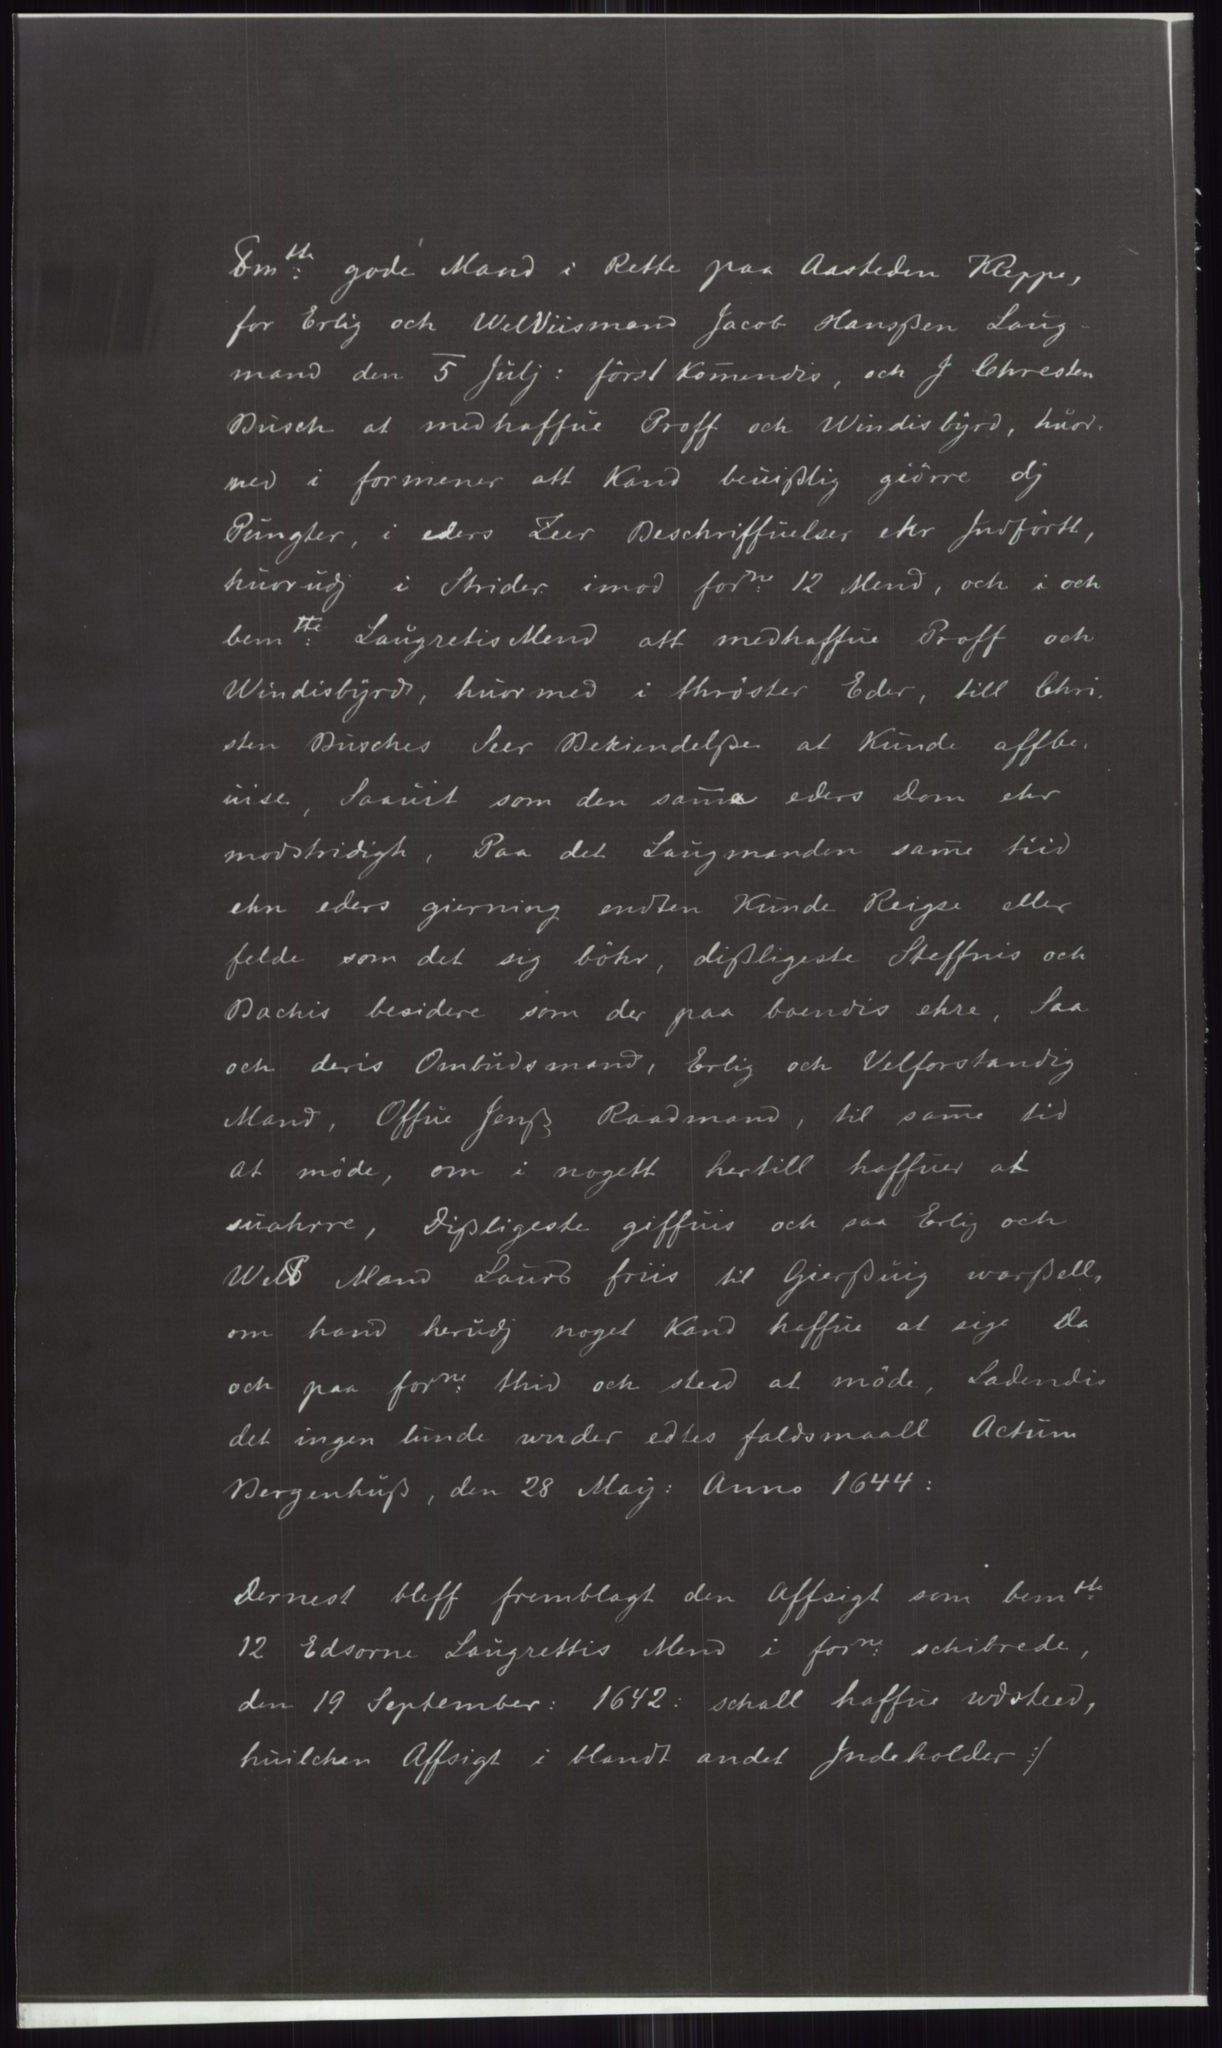 Bmtte: gode Mand i Rette paa Aasteden Kleppe,
for Erlig och WelViismand Jacob Hansßen Laug-
mand den 5 Julj: först komendis, och J Chresten
Busch at medhaffue Proff och Windisbÿrd, huor-
med i formener att Kand beuißlig giörre dj
Pungter, i eders Zeer Beschriffuelser ehr Jndförtt,
huorudj i Strider imod forne: 12 Mend, och i och
bemtte: Laugretis Mend att medhaffue Proff och
Windisbÿrd, huormed i thröster Eder, till Chri-
sten Busches Seer Bekiendelße at Kunde affbe-
uise, Saauit som den same eders Dom ehr
modstridigh, Paa det Laugmanden same tiid
ehn eders gierning endten Kunde Reigse eller
felde som det sig böhr, dißligeste Steffnis och
Bachis besidere som der paa boendis ehre, Saa
och deris Ombudsmand, Erlig och Velforstandig
Mand, Offue Jenß Raadmand, til same tid
at möde, om i nogett hertill haffuer at
suahrre, Dißligeste giffuis och saa Erlig och
Welb Mand Laurs friis til Gierßuig warßell,
om hand herudj noget Kand haffue at sige Da
och paa forne: thid och steed at möde, Ladendis
det ingen lunde under edtes faldsmaall Actum
Bergenhuß, den 28 Maij: Anno 1644:
Dernest bleff fremblagt den Affsigt som bemtte:
12 Edsorne Laugrettis Mend i forne: schibrede,
den 19 September: 1642: schall haffue udsteed,
huilchen Affsigt i blandt andet Jndeholder :/